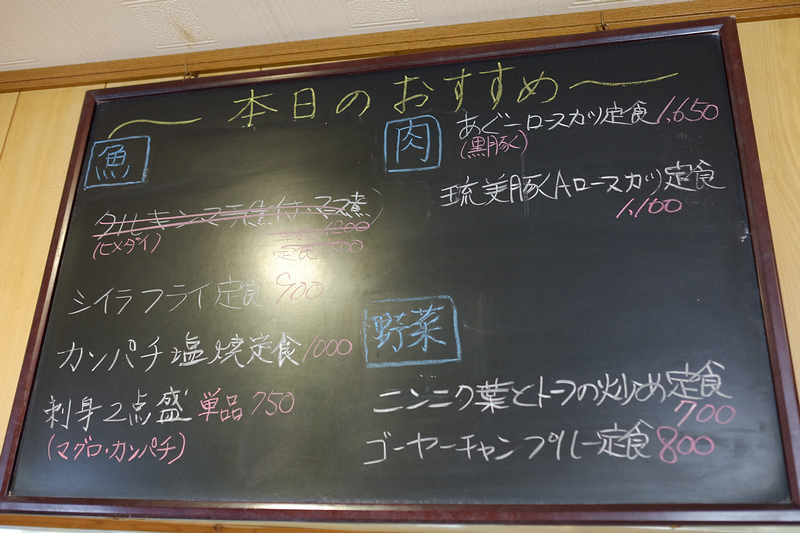 〜本日のおすすめ〜
魚
タルキン マース煮
(ヒメダイ)
定食
シイラフライ定食 900
カンパチ塩焼定食 1000
刺身2点盛 単品 750
(マグロ・カンパチ)
肉
あぐーロースカツ定食 1,650
(黒豚)
琉美豚Aロースカツ定食
1,100
野菜
ニンニク葉とトーフの炒め定食
700
ゴーヤーチャンプルー定食 800